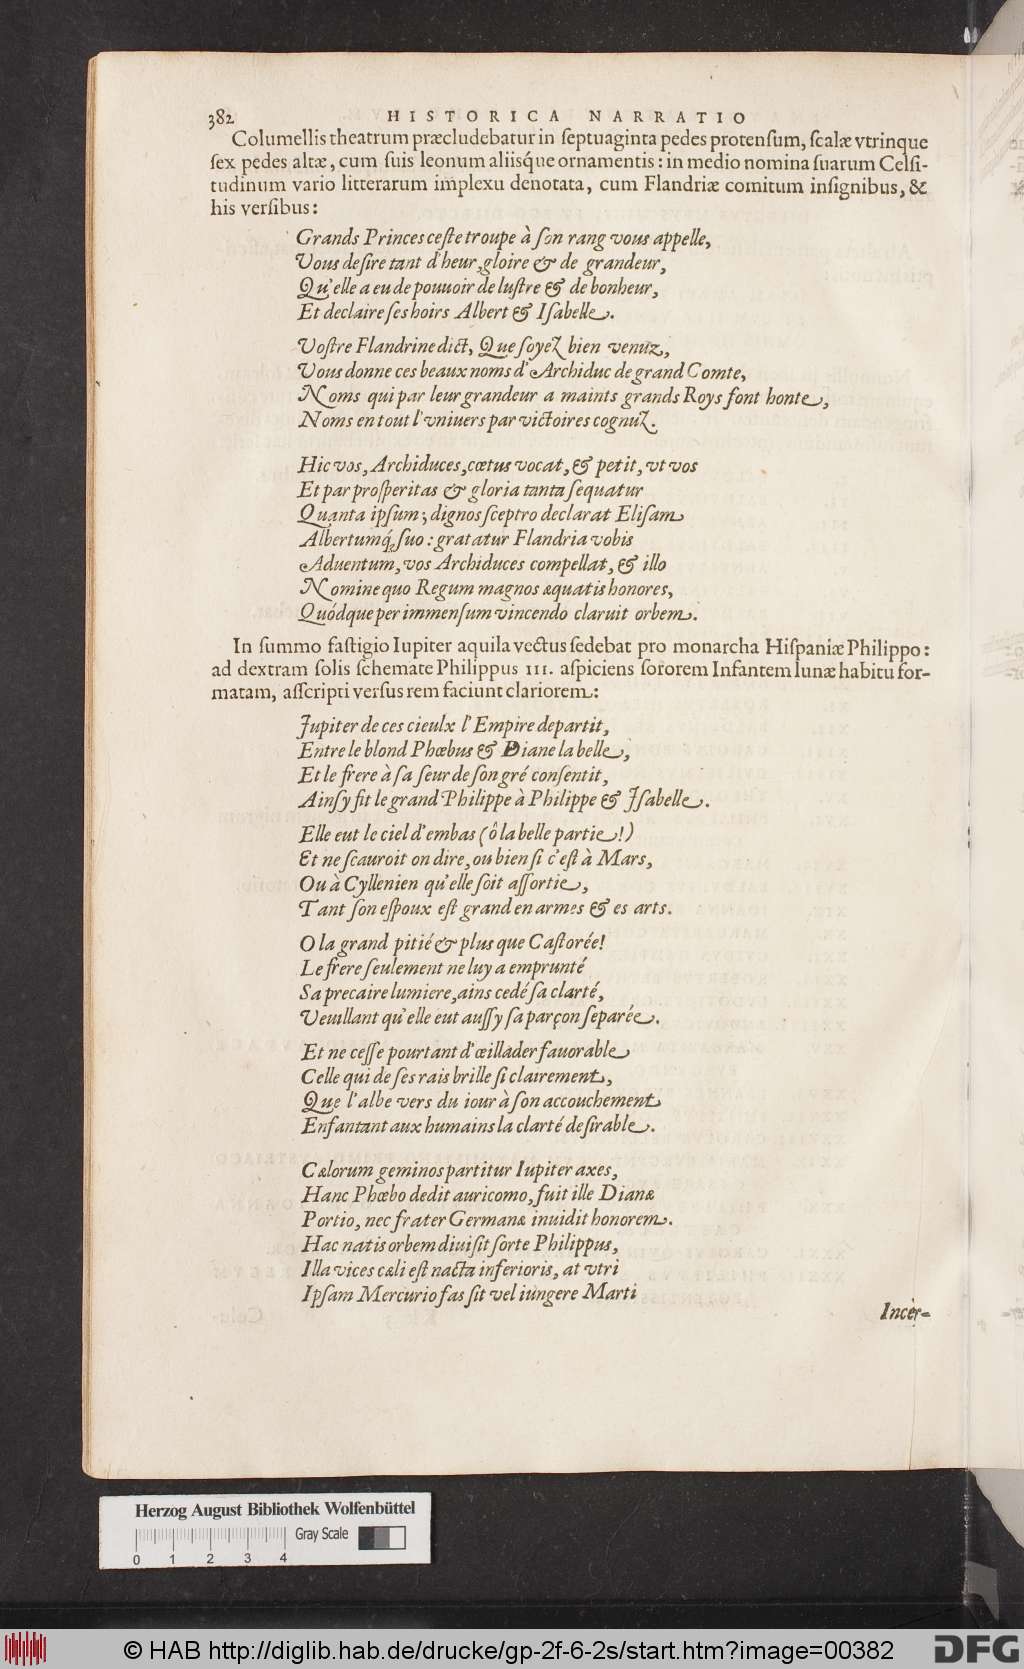 382 HISTORICA NARRATIO
Columellis theatrum præcludebatur in ſeptuaginta pedes protenſum, ſcalæ vtrinque
ſex pedes altæ, cum ſuis leonum aliiśque ornamentis: in medio nomina ſuarum Celſi-
tudinum vario litterarum implexu denotata, cum Flandriæ comitum inſignibus, &
his verſibus:
Grands Princes ceſte troupe à ſon rang vous appelle,
Vous deſire tant d'heur, gloire & de grandeur,
Qu'elle a eu de pouuoir de luſtre & de bonheur,
Et declaire ſes hoirs Albert & Iſabelle.
Voſtre Flandrine dict, Que ſoyez bien venuz,
Vous donne ces beaux noms d'Archiduc de grand Comte,
Noms qui par leur grandeur a maints grands Roys font honte,
Noms en tout l'vniuers par victoires cognuz.
Hic vos, Archiduces, cœtus vocat, & petit, vt vos
Et par proſperitas & gloria tanta ſequatur
Quanta ipſum; dignos ſceptro declarat Eliſam
Albertumq́; ſuo: gratatur Flandria vobis
Aduentum, vos Archiduces compellat, & illo
Nomine quo Regum magnos æquatis honores,
Quódque per immenſum vincendo claruit orbem.
In ſummo faſtigio Iupiter aquila vectus ſedebat pro monarcha Hiſpaniæ Philippo:
ad dextram ſolis ſchemate Philippus III. aſpiciens ſororem Infantem lunæ habitu for-
matam, aſſcripti verſus rem faciunt clariorem:
Jupiter de ces cieulx l'Empire departit,
Entre le blond Phœbus & Diane la belle,
Et le frere à ſa ſeur de ſon gré conſentit,
Ainſy fit le grand Philippe à Philippe & Jſabelle.
Elle eut le ciel d'embas (ô la belle partie!)
Et ne ſcauroit on dire, ou bien ſi c'eſt à Mars,
Ou à Cyllenien qu'elle ſoit aſſortie,
Tant ſon eſpoux eſt grand en armes & es arts.
O la grand pitié & plus que Caſtorée!
Le frere ſeulement ne luy a emprunté
Sa precaire lumiere, ains cedé ſa clarté,
Veuillant qu'elle eut auſſy ſa parçon ſeparée.
Et ne ceſſe pourtant d'œillader fauorable
Celle qui de ſes rais brille ſi clairement,
Que l'albe vers du iour à ſon accouchement
Enfantant aux humains la clarté deſirable.
Cælorum geminos partitur Iupiter axes,
Hanc Phœbo dedit auricomo, fuit ille Dianæ
Portio, nec frater Germanæ inuidit honorem.
Hac natis orbem diuiſit ſorte Philippus,
Illa vices cæli eſt nacta inferioris, at vtri
Ipſam Mercurio fas ſit vel iungere Marti
Incèr-
Herzog August Bibliothek Wolfenbüttel
Gray Scale
0 1 2 3 4
© HAB http://diglib.hab.de/drucke/gp-2f-6-2s/start.htm?image=00382
DFG